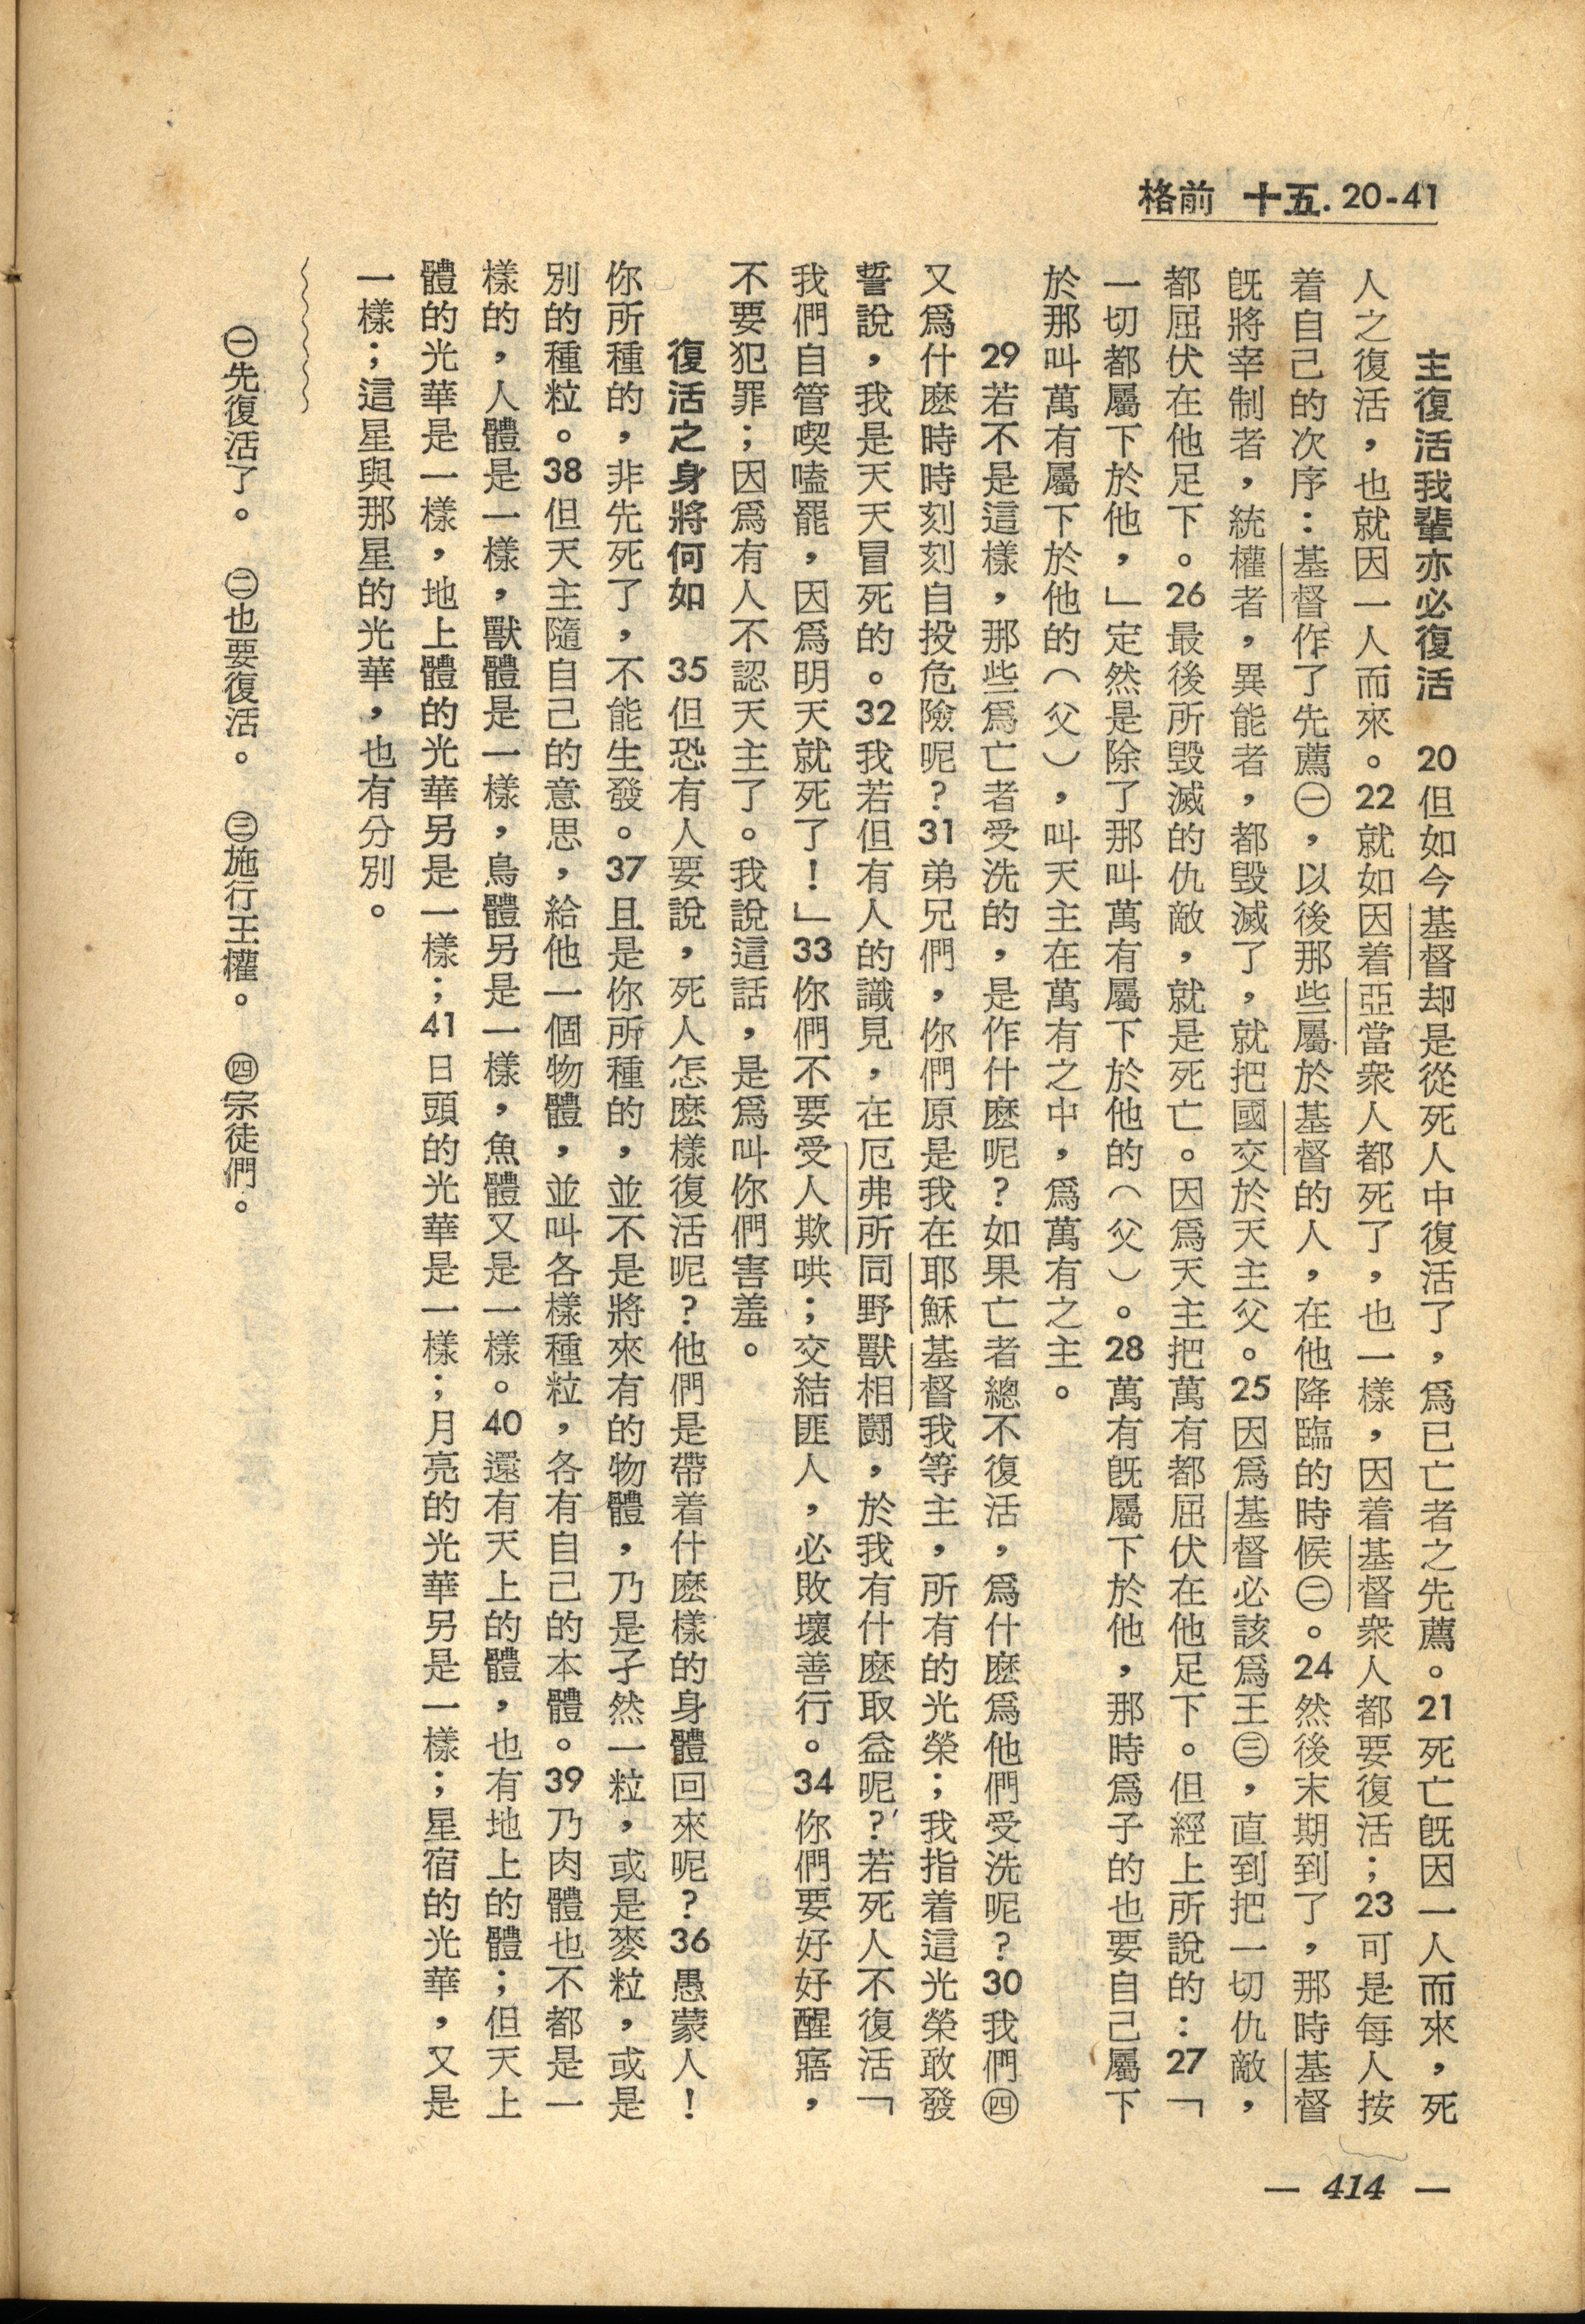 格前 十五. 20-41
主復活我輩亦必復活 20但如今基督却是從死人中復活了，爲已亡者之先薦。21死亡旣因一人而來，死
人之復活，也就因一人而來。22就如因着亞當衆人都死了，也一樣，因着基督衆人都要復活；23可是每人按
着自己的次序：基督作了先薦㊀，以後那些屬於基督的人，在他降臨的時候㊁。24然後末期到了，那時基督
旣將宰制者，統權者，異能者，都毀滅了，就把國交於天主父。25因爲基督必該爲王㊂，直到把一切仇敵，
都屈伏在他足下。26最後所毀滅的仇敵，就是死亡。因爲天主把萬有都屈伏在他足下。但經上所說的：27「
一切都屬下於他，」定然是除了那叫萬有屬下於他的（父）。28萬有旣屬下於他，那時爲子的也要自己屬下
於那叫萬有屬下於他的（父），叫天主在萬有之中，爲萬有之主。
29若不是這樣，那些爲亡者受洗的，是作什麽呢？如果亡者總不復活，爲什麽爲他們受洗呢？30我們㊃
又爲什麽時時刻刻自投危險呢？31弟兄們，你們原是我在耶穌基督我等主，所有的光榮；我指着這光榮敢發
誓說，我是天天冒死的。32我若但有人的識見，在厄弗所同野獸相鬪，於我有什麽取益呢？若死人不復活「
我們自管喫嗑罷，因爲明天就死了！」33你們不要受人欺哄；交結匪人，必敗壞善行。34你們要好好醒寤，
不要犯罪；因爲有人不認天主了。我說這話，是爲叫你們害羞。
復活之身將何如 35但恐有人要說，死人怎麽樣復活呢？他們是帶着什麽樣的身體回來呢？36愚蒙人！
你所種的，非先死了，不能生發。37且是你所種的，並不是將來有的物體，乃是孑然一粒，或是麥粒，或是
別的種粒。38但天主隨自己的意思，給他一個物體，並叫各樣種粒，各有自己的本體。39乃肉體也不都是一
樣的，人體是一樣，獸體是一樣，鳥體另是一樣，魚體又是一樣。40還有天上的體，也有地上的體；但天上
體的光華是一樣，地上體的光華另是一樣；41日頭的光華是一樣；月亮的光華另是一樣；星宿的光華，又是
一樣；這星與那星的光華，也有分別。
㊀先復活了。 ㊁也要復活。 ㊂施行王權。 ㊃宗徒們。
— 414 —